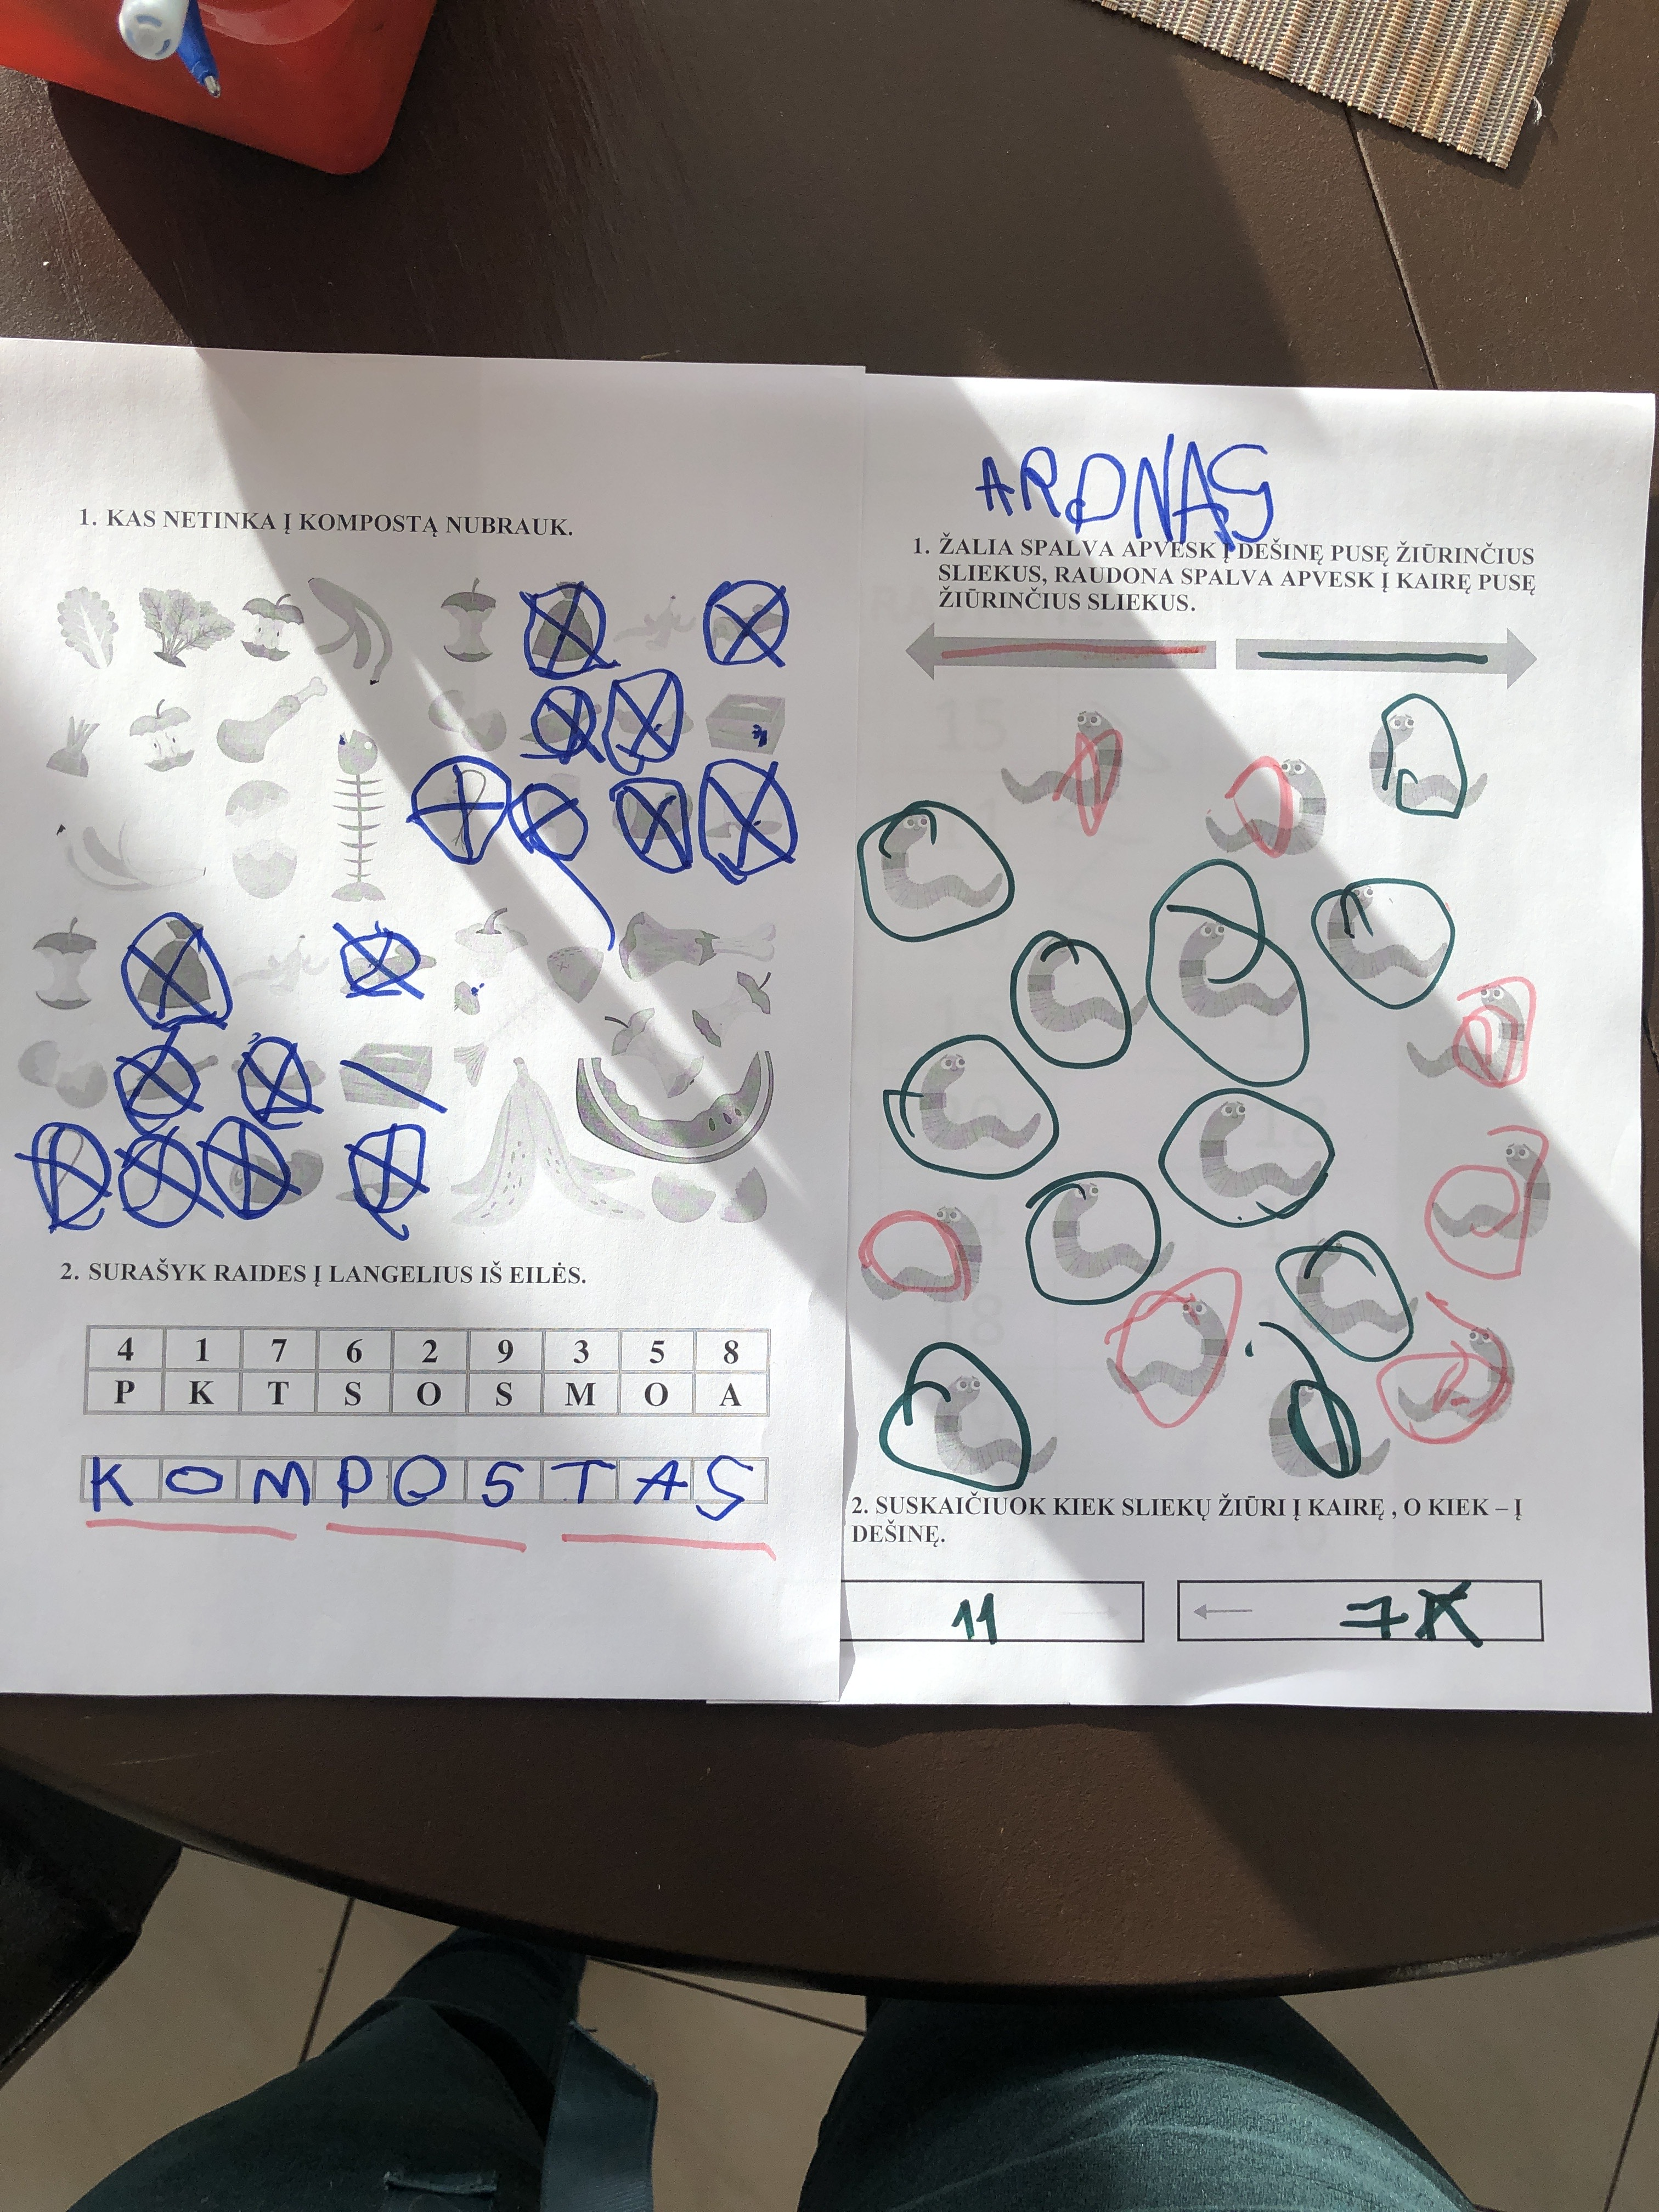 1. KAS NETINKA Į KOMPOSTĄ NUBRAUK.
2. SURAŠYK RAIDES Į LANGELIUS IŠ EILĖS.
4 1 7 6 2 9 3 5 8
P K T S O S M O A
K O M P O S T A S
ARONAS
1. ŽALIA SPALVA APVESK Į DEŠINĘ PUSĘ ŽIŪRINČIUS
SLIEKUS, RAUDONA SPALVA APVESK Į KAIRĘ PUSĘ
ŽIŪRINČIUS SLIEKUS.
2. SUSKAIČIUOK KIEK SLIEKŲ ŽIŪRI Į KAIRĘ , O KIEK – Į
DEŠINĘ.
11
7